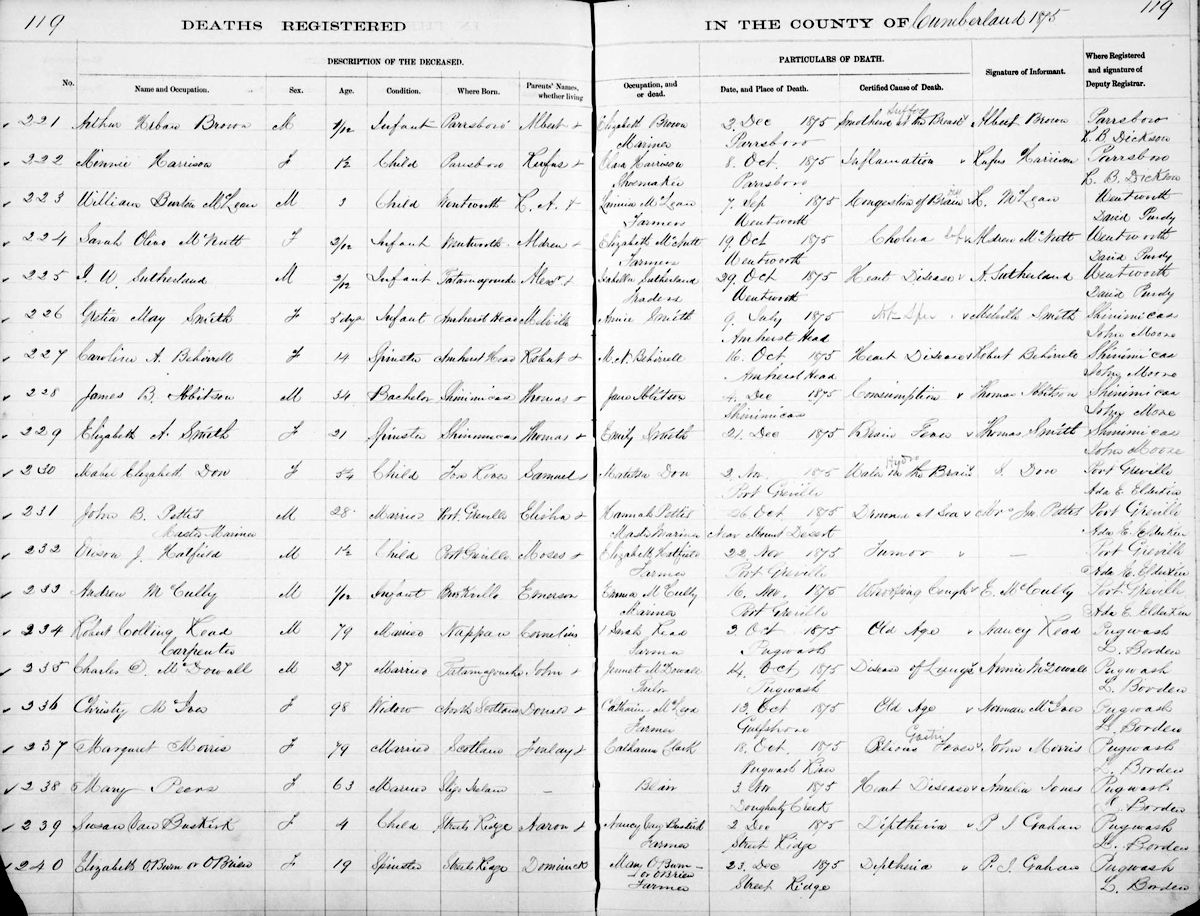 119
119
DEATHS REGISTERED IN THE COUNTY OF Cumberland 1875
DESCRIPTION OF THE DECEASED.
PARTICULARS OF DEATH.
No. Name and Occupation. Sex. Age. Condition. Where Born. Parents' Names, whether living Occupation, and or dead. Date, and Place of Death. Certified Cause of Death. Signature of Informant. Where Registered and signature of Deputy Registrar.
221 Arthur Urban Brown M /12 Infant Parrsboro' Albert + Elizabeth Brown 2 Dec 1875 Smothered at the Breast Albert Brown Parrsboro
Mariner Parrsboro L. B. Dickson
222 Minnie Harrison F 1½ Child Parrsboro Rufus + Clara Harrison 8 Oct 1875 Inflamation Rufus Harrison Parrsboro
Shoemaker Parrsboro L. B. Dickson
223 William Burton McLean M Child Wentworth McLean 7 Sep 1875 Congestion of Brain McLean Wentworth
Farmer Wentworth David Purdy
224 Sarah Olive McNutt F 2/12 Infant Wentworth Aldren + Elizabeth McNutt 19 Oct 1875 Cholera Inf Aldren McNutt Wentworth
Farmer Wentworth David Purdy
225 J. W. Sutherland M 2/12 Infant Tatamagouche Alexr + Isabella Sutherland 29 Oct 1875 Heart Disease A. Sutherland Wentworth
Trader Wentworth David Purdy
226 Gretia May Smith F Infant Amherst Head Melville Annie Smith 9 July 1875 Melville Smith Shinimicas
Amherst Head John Moore
227 Caroline A. Behirrell F 14 Spinster Amherst Head Robert + M. A. Behirrell 16 Oct 1875 Heart Disease Robert Behirrell Shinimicas
Amherst Head John Moore
228 James B. Abitson M 34 Bachelor Shinimicas Thomas + Jane Abitson 4 Dec 1875 Consumption Thomas Abitson Shinimicas
Shinimicas John Moore
229 Elizabeth A. Smith F 21 Spinster Shinimicas Thomas + Emily Smith 21 Dec 1875 Brain Fever Thomas Smith Shinimicas
John Moore
230 Mabel Elizabeth Dow F Child Fox River Samuel + Matilda Dow 2 Nov 1875 Water on the Brain Hydro S. Dow Port Greville
Port Greville Ada E. Elderkin
231 John B. Pettis M 28 Married Port Greville Elisha + Hannah Pettis 26 Oct 1875 Drowned at Sea Mrs Jno Pettis Port Greville
Master Mariner Master Mariner Near Mount Desert Ada E. Elderkin
232 J. Hatfield M 1½ Child Port Greville Moses + Elizabeth Hatfield 22 Nov 1875 Tumor — Port Greville
Farmer Port Greville Ada E. Elderkin
233 Andrew McCully M /12 Infant Emerson Emma McCully 16 Nov 1875 Whooping Cough E. McCully Port Greville
Mariner Port Greville Ada E. Elderkin
234 Robert Colling Read M 79 Married Nappan Cornelius + Sarah Read 2 Oct 1875 Old Age Nancy Read Pugwash
Carpenter Farmer Pugwash L. Borden
235 Charles D. McDowall M 27 Married Tatamagouche John + Jennet McDowall 14 Oct 1875 Disease of Lungs Annie McDowall Pugwash
Tailor Pugwash L. Borden
236 Christy McIver F 98 Widow North Scotland Donald + Catharine McLeod 13 Oct 1875 Old Age Norman McIver Pugwash
Farmer Gulfshore L. Borden
237 Margaret Morris F 79 Married Scotland Finlay + Catharine Clark 18 Oct 1875 Bilious Fever Gastric John Morris Pugwash
Pugwash River L. Borden
238 Mary Peers F 63 Married Sligo Ireland — Blair 3 Nov 1875 Heart Disease Amelia Jones Pugwash
Dougherty Creek L. Borden
239 Susan Van Buskirk F 4 Child Streets Ridge Aaron + Nancy Van Buskirk 2 Dec 1875 Diptheria P. S. Graham Pugwash
Farmer Street Ridge L. Borden
240 Elizabeth O'Burn or O'Brien F 19 Spinster Streets Ridge Dominick Mary O'Burn 23 Dec 1875 Diptheria P. S. Graham Pugwash
or O'Brien
Farmer Street Ridge L. Borden